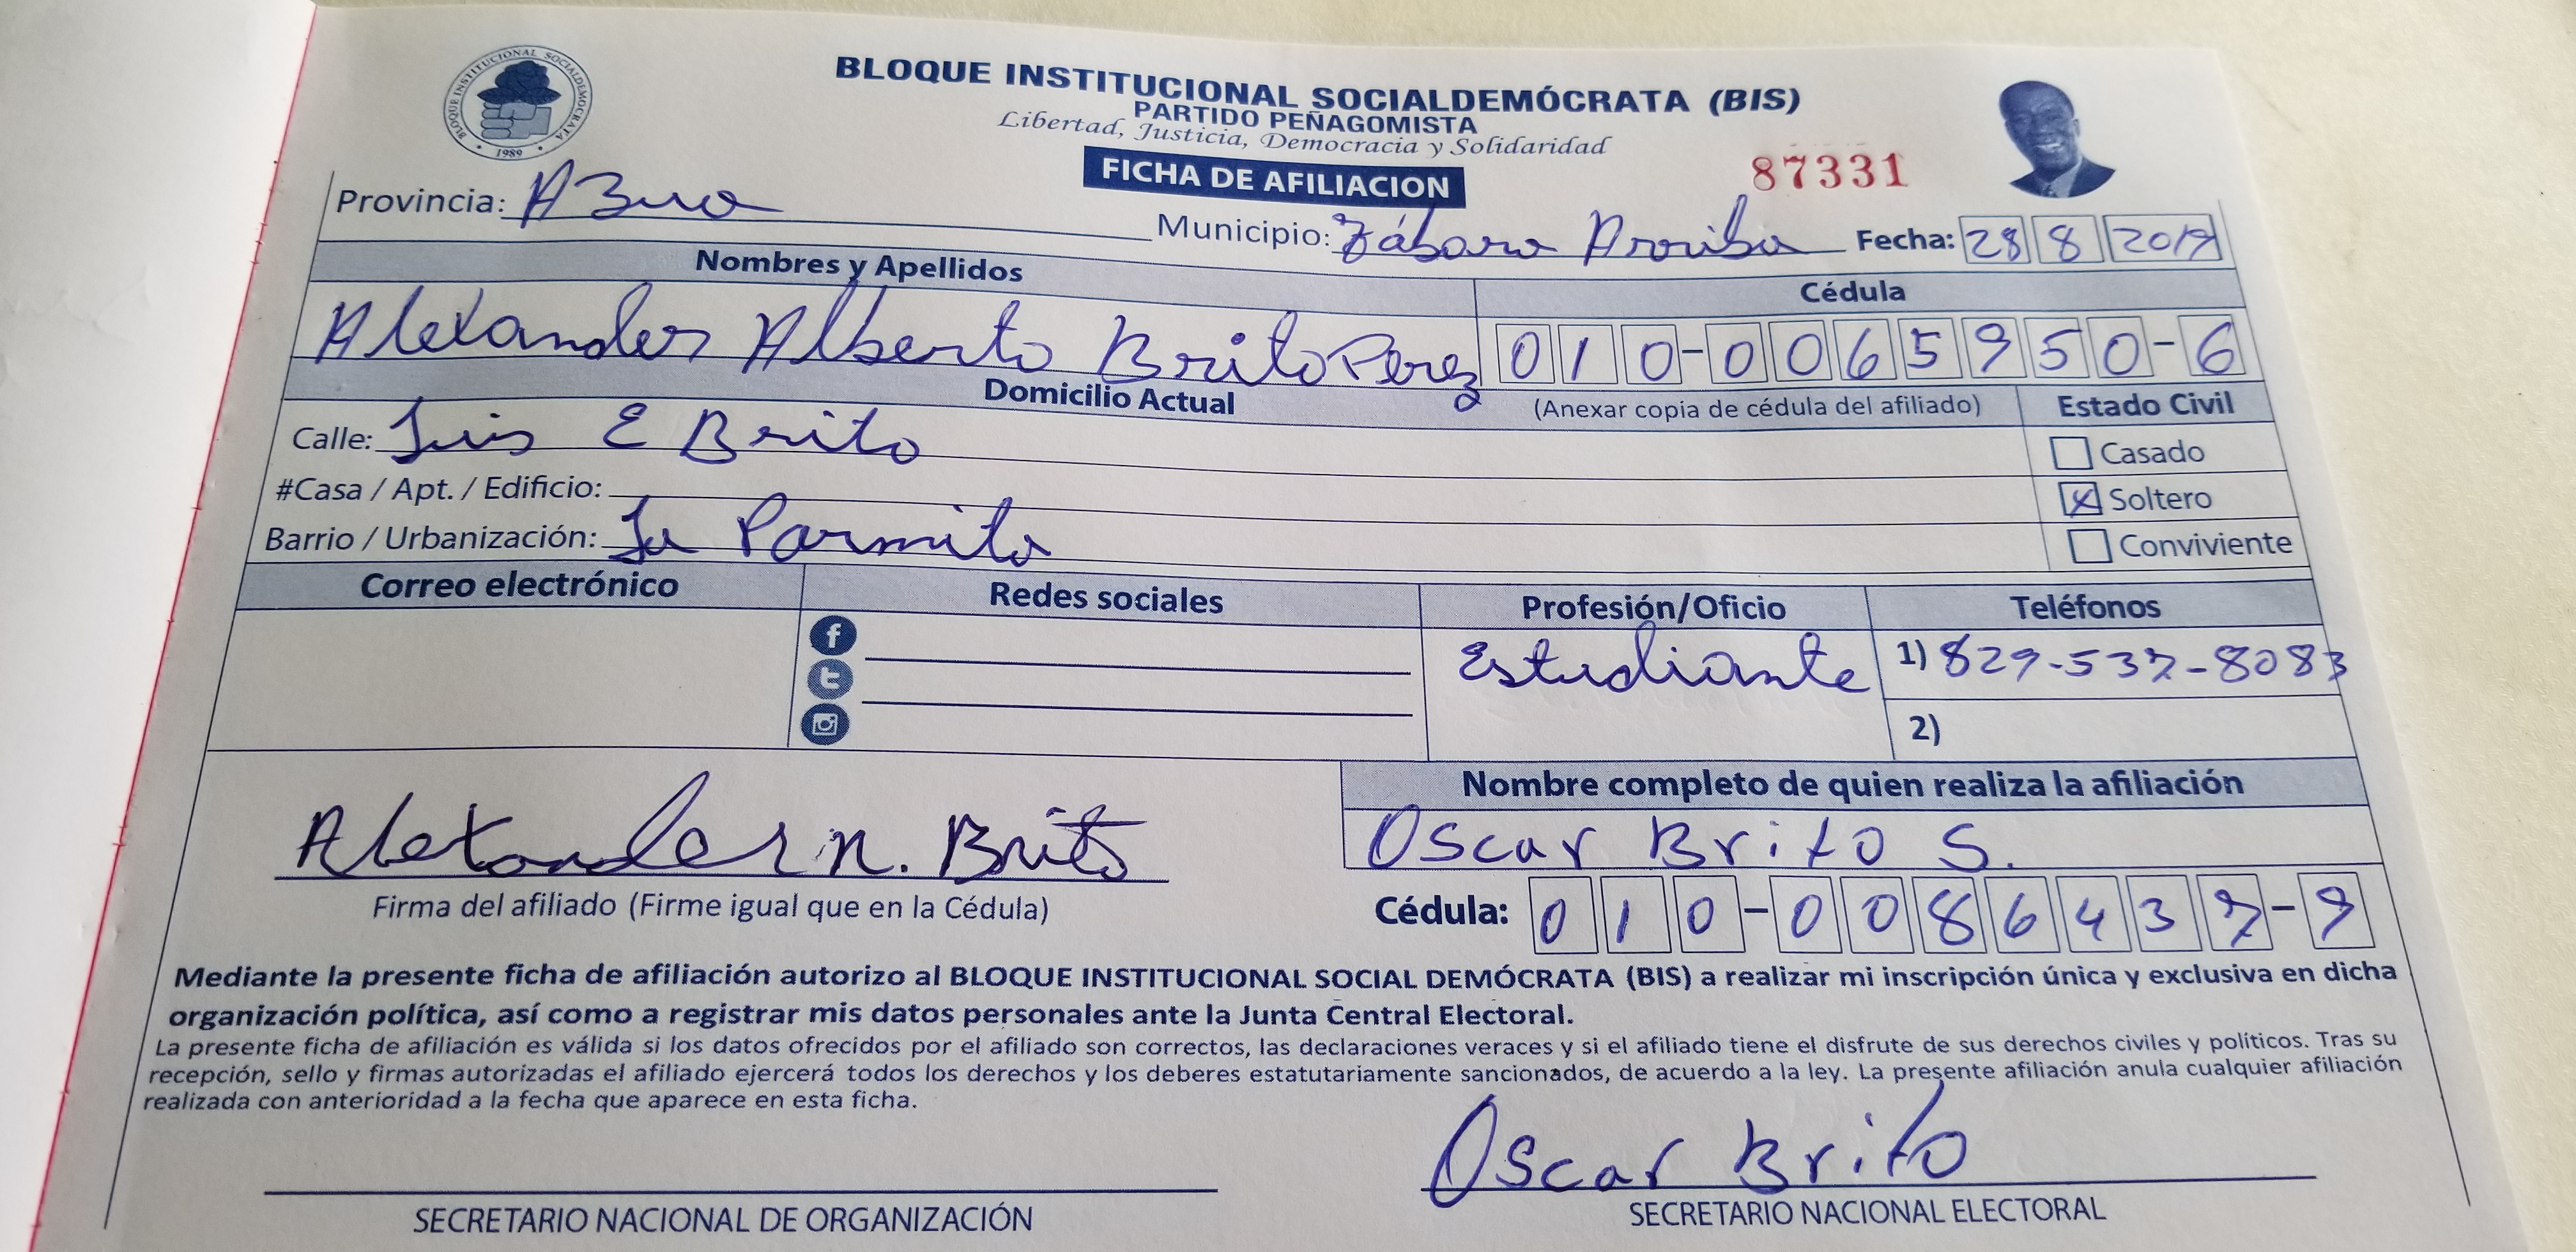 BLOQUE INSTITUCIONAL SOCIALDEMOCRATA
1989
BLOQUE INSTITUCIONAL SOCIALDEMÓCRATA (BIS)
PARTIDO PEÑAGOMISTA
Libertad, Justicia, Democracia y Solidaridad
FICHA DE AFILIACION
87331
Provincia: Azua Municipio: Tábara Arriba Fecha: 28 8 2019
Nombres y Apellidos Cédula
Alexander Alberto Brito Perez 010-0065950-6
Domicilio Actual (Anexar copia de cédula del afiliado) Estado Civil
Calle: Luis E Brito
Casado
#Casa / Apt. / Edificio:
X Soltero
Barrio / Urbanización: La Parmita
Conviviente
Correo electrónico Redes sociales Profesión/Oficio Teléfonos
f
t
Estudiante 1) 829-537-8083
2)
Nombre completo de quien realiza la afiliación
Oscar Brito S.
Alexander Brito
Firma del afiliado (Firme igual que en la Cédula)
Cédula: 010-0086437-9
Mediante la presente ficha de afiliación autorizo al BLOQUE INSTITUCIONAL SOCIAL DEMÓCRATA (BIS) a realizar mi inscripción única y exclusiva en dicha
organización política, así como a registrar mis datos personales ante la Junta Central Electoral.
La presente ficha de afiliación es válida si los datos ofrecidos por el afiliado son correctos, las declaraciones veraces y si el afiliado tiene el disfrute de sus derechos civiles y políticos. Tras su
recepción, sello y firmas autorizadas el afiliado ejercerá todos los derechos y los deberes estatutariamente sancionados, de acuerdo a la ley. La presente afiliación anula cualquier afiliación
realizada con anterioridad a la fecha que aparece en esta ficha.
Oscar Brito
SECRETARIO NACIONAL DE ORGANIZACIÓN SECRETARIO NACIONAL ELECTORAL